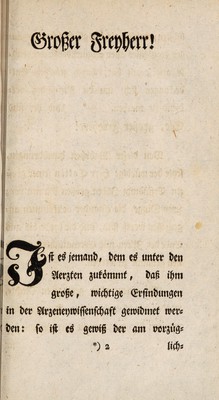 Großer Freyherr!
Ist es jemand, dem es unter den
Aerzten zukömmt, daß ihm
große, wichtige Erfindungen
in der Arzeneywissenschaft gewidmet wer-
den: so ist es gewiß der am vorzüg-
*) 2 lich-